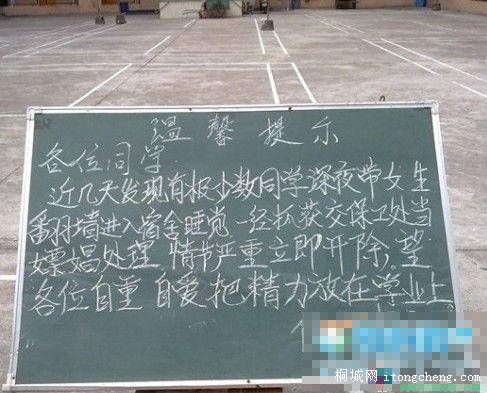 温馨提示
各位同学
近几天发现有极少数同学深夜带女生
翻墙进入宿舍睡觉 一经抓获交保卫处当
嫖娼处理 情节严重立即开除。望
各位自重 自爱把精力放在学业上
桐城网 itongcheng.com